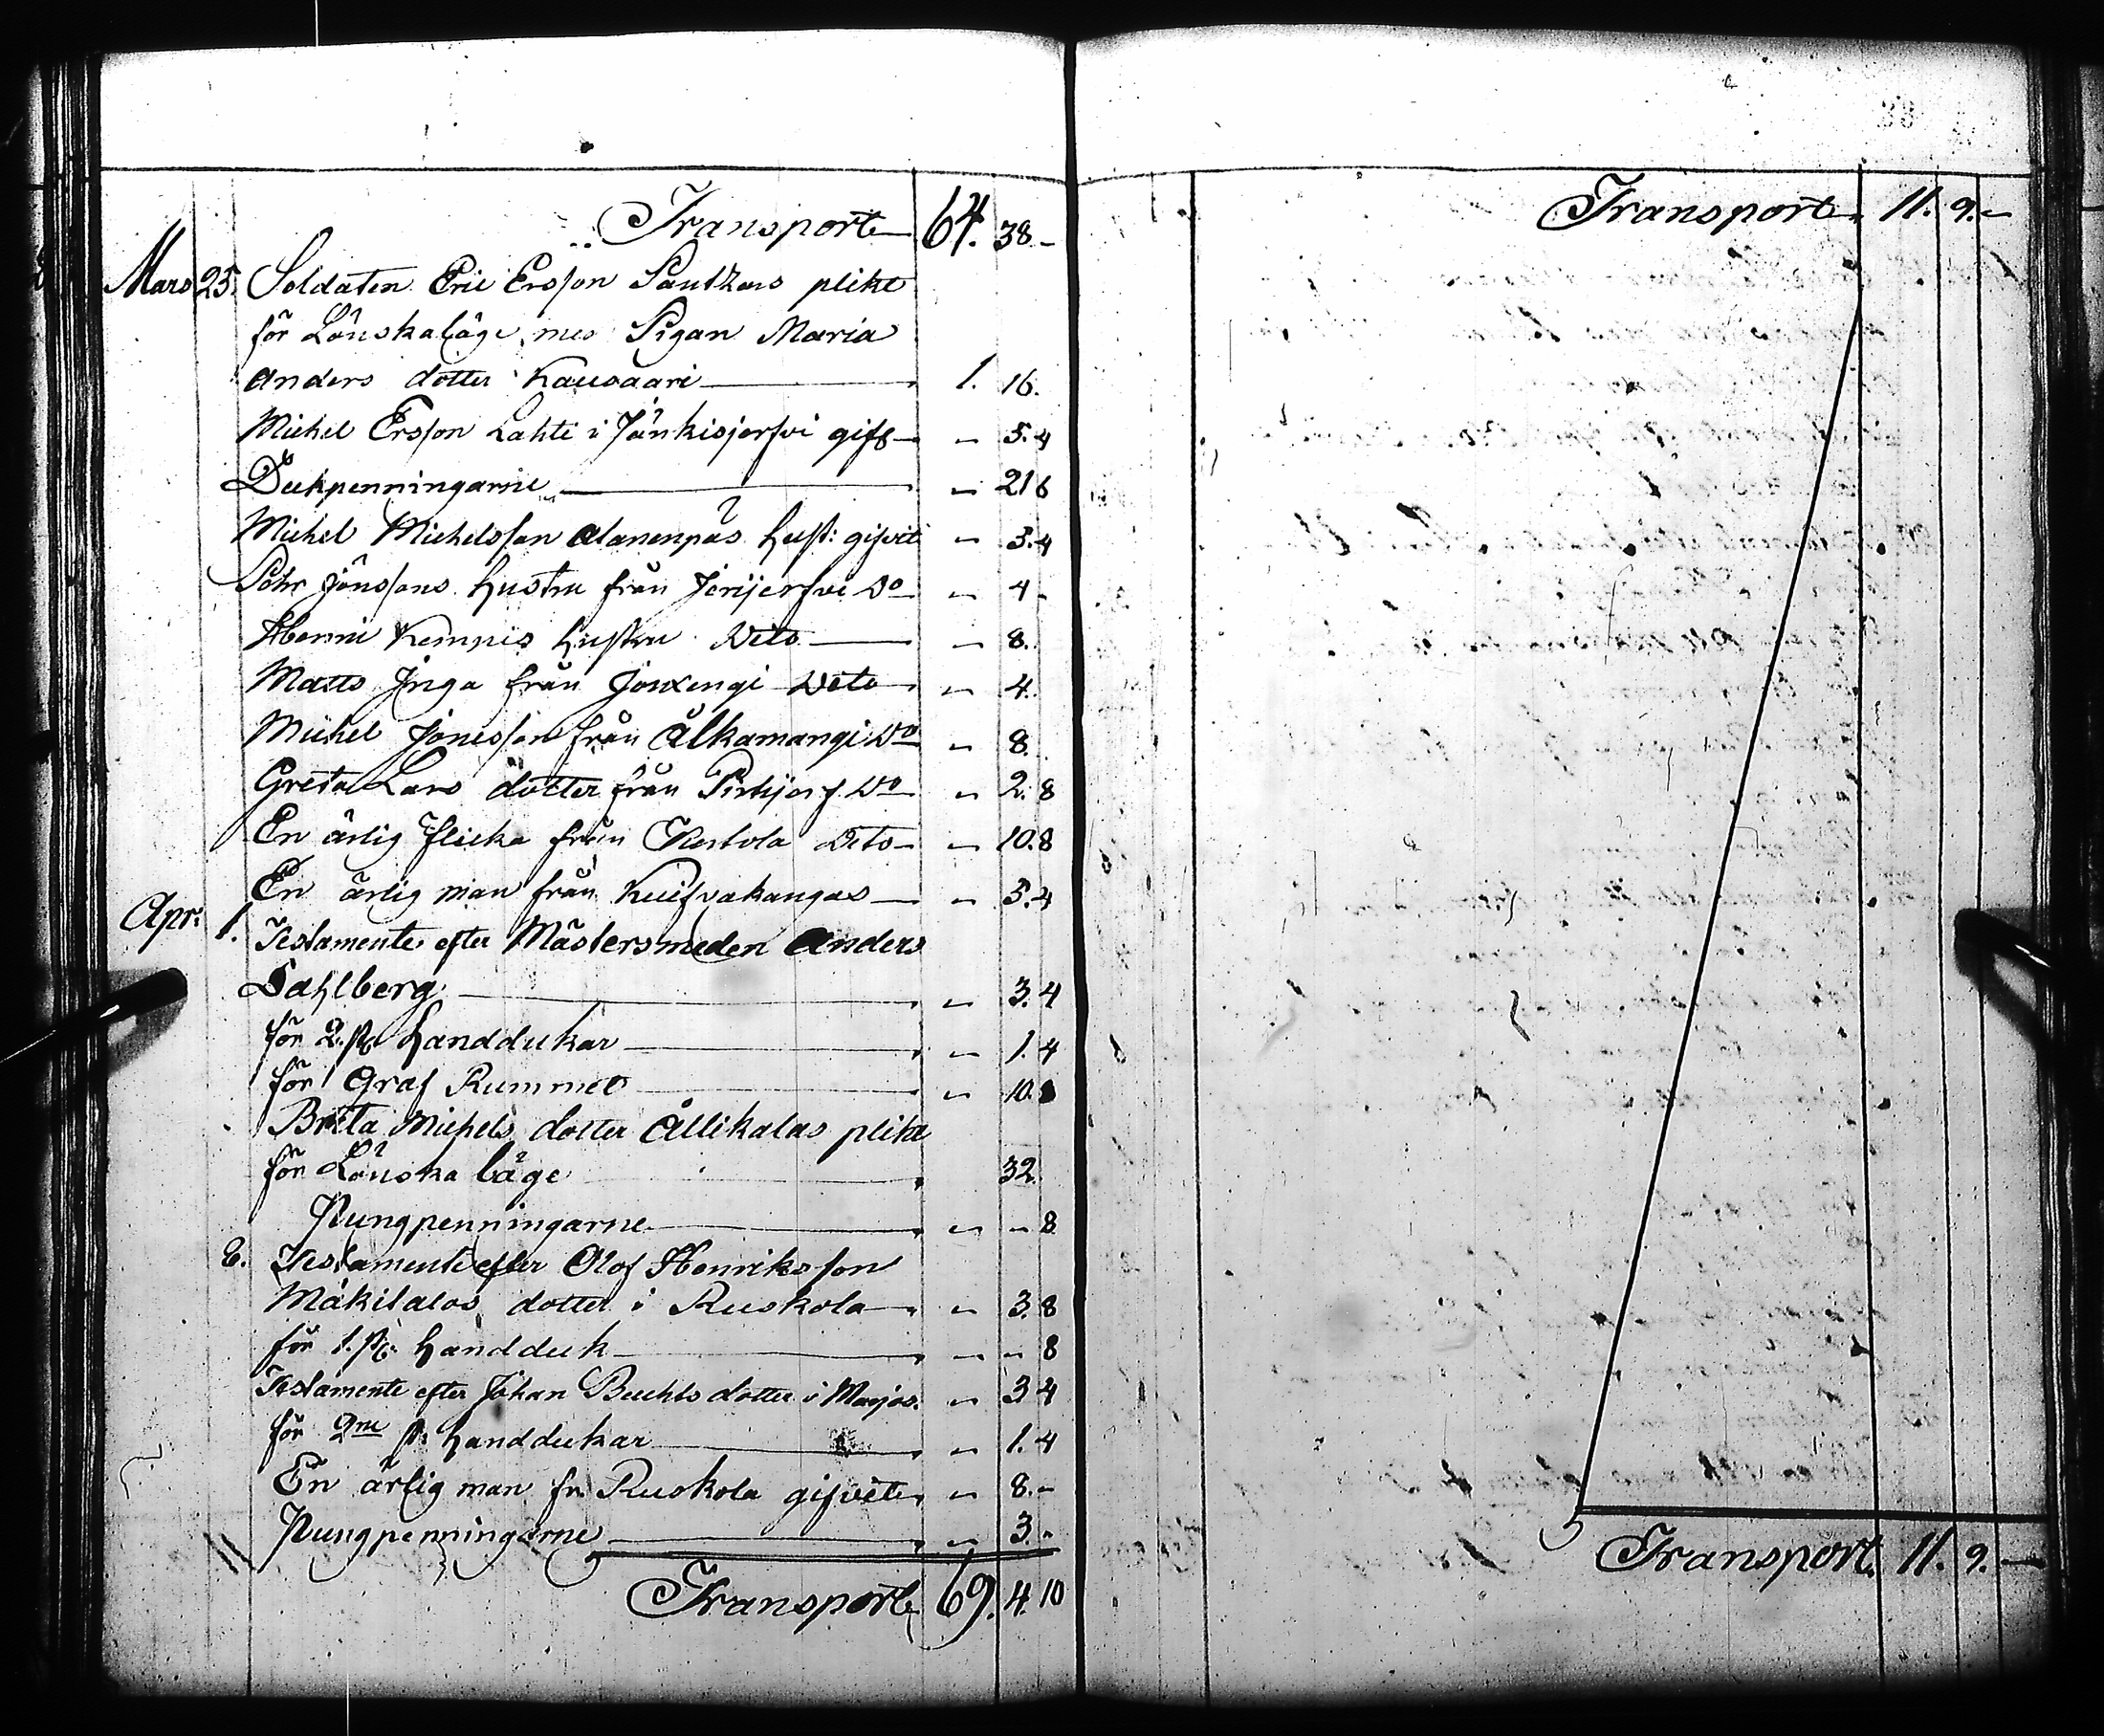 Transport 64. 38 -
Mars 25. Soldaten Eric Ersson plikt
för Lönskaläge med Pigan Maria
Anders dotter Kausaari 1. 16.
Michel Ersson Lahti i Jänkisjerfvi gift - 5.4
- 21 6
Michel Michelsson Alanenpäs hust: gifvit - 5.4
Pehr Jönssons hustru från Jerijerfvi Do - 4 -
Henric Kempis hustru Dito - 8.
Matts Inga från Jouxengi Dito - 4.
Michel Jönsson från Alkamangi Do - 8.
Greta Lars dotter från Pirtijerf Do - 2. 8
En ärlig flicka från Dito - 10.8
En ärlig man från Kuifvakangas - 5.4
Apr: 1. Testamente efter Mästersmeden Anders
Dahlberg - 3. 4
för 2. st Handdukar - 1. 4
för Graf Rummet - 10.
Brita Michels dotter Allikalas plikt
för Lönska läge 32.
Pungpenningarne - - 8
Testamente efter Olof Henriksson
Mäkitalos dotter i Ruskola - 3. 8
för 1. st: Handduk - - 8
Testamente efter Johan Buchts dotter i Marjos. - 3 4
för 2ne st: Handdukar - 1. 4
En ärlig man fr: Ruskola gifvit - 8. -
Pungpenningarne - 3. -
Transport 69. 4. 10
Transport 11. 9. -
Transport 11. 9. -